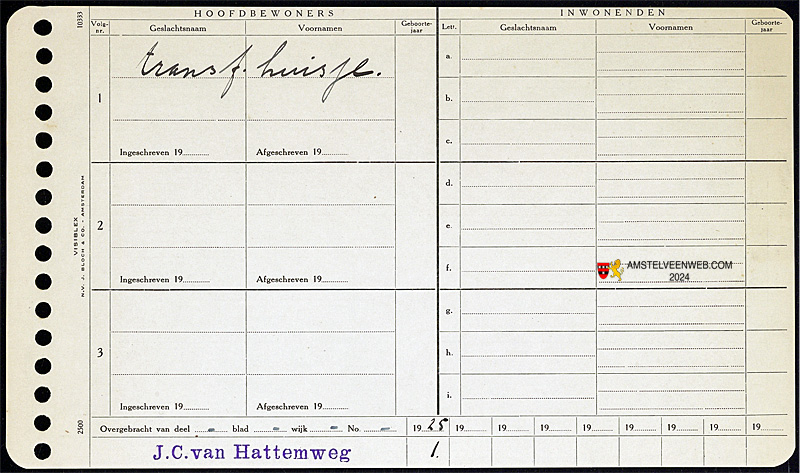 HOOFDBEWONERS
INWONENDEN
10333
Volg-nr.
Geslachtsnaam
Voornamen
Geboorte-jaar
Lett.
Geslachtsnaam
Voornamen
Geboorte-jaar
1
transf. huisje.
Ingeschreven 19
Afgeschreven 19
a.
b.
c.
2
Ingeschreven 19
Afgeschreven 19
d.
e.
f.
3
Ingeschreven 19
Afgeschreven 19
g.
h.
i.
VISIBLEX
N.V. J. BLOCH & CO. - AMSTERDAM
2500
AMSTELVEENWEB.COM
2024
Overgebracht van deel - blad - wijk - No. -
19 25 19 19 19 19 19 19 19 19
J.C.van Hattemweg
1.